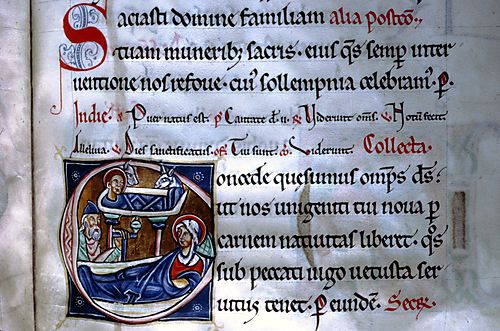 Saciasti domine familiam alia postcō.
tuam muneribꝫ sacris · eius q̄s semꝑ inter
uentione nos refoue · cui' sollempnia celebram'. ꝑ.
In die. Puer natus est. p̄ Cantate d. ii. Viderunt om̄s. Notū fecit
Alleluia. Dies sanctificatus. Tui sunt. Viderunt. Collecta.
Concede quesumus omp̄s ds̄.
ut nos unigeniti tui noua ꝑ
carnem natiuitas liberet · q̄s
sub peccati iugo uetusta ser
uitus tenet · ꝑ eundē. Secr̄.